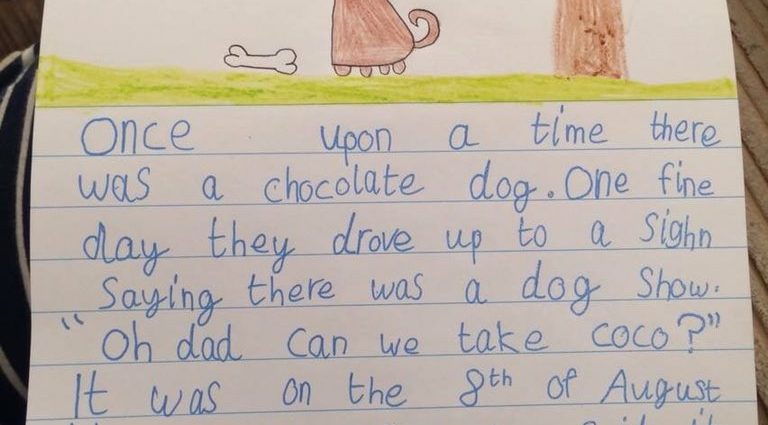 Once upon a time there
was a chocolate dog. One fine
day they drove up to a Sighn
Saying there was a dog Show.
"Oh dad Can we take coco?"
It was on the 8th of August